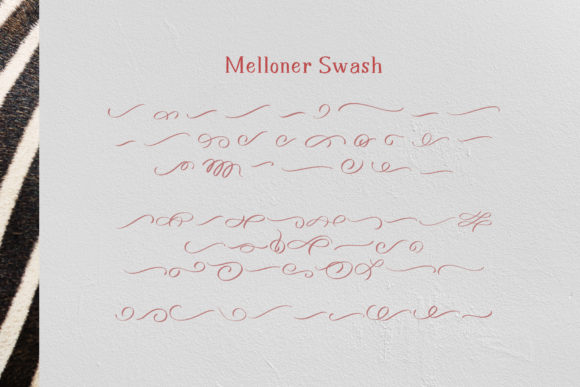 Melloner Swash